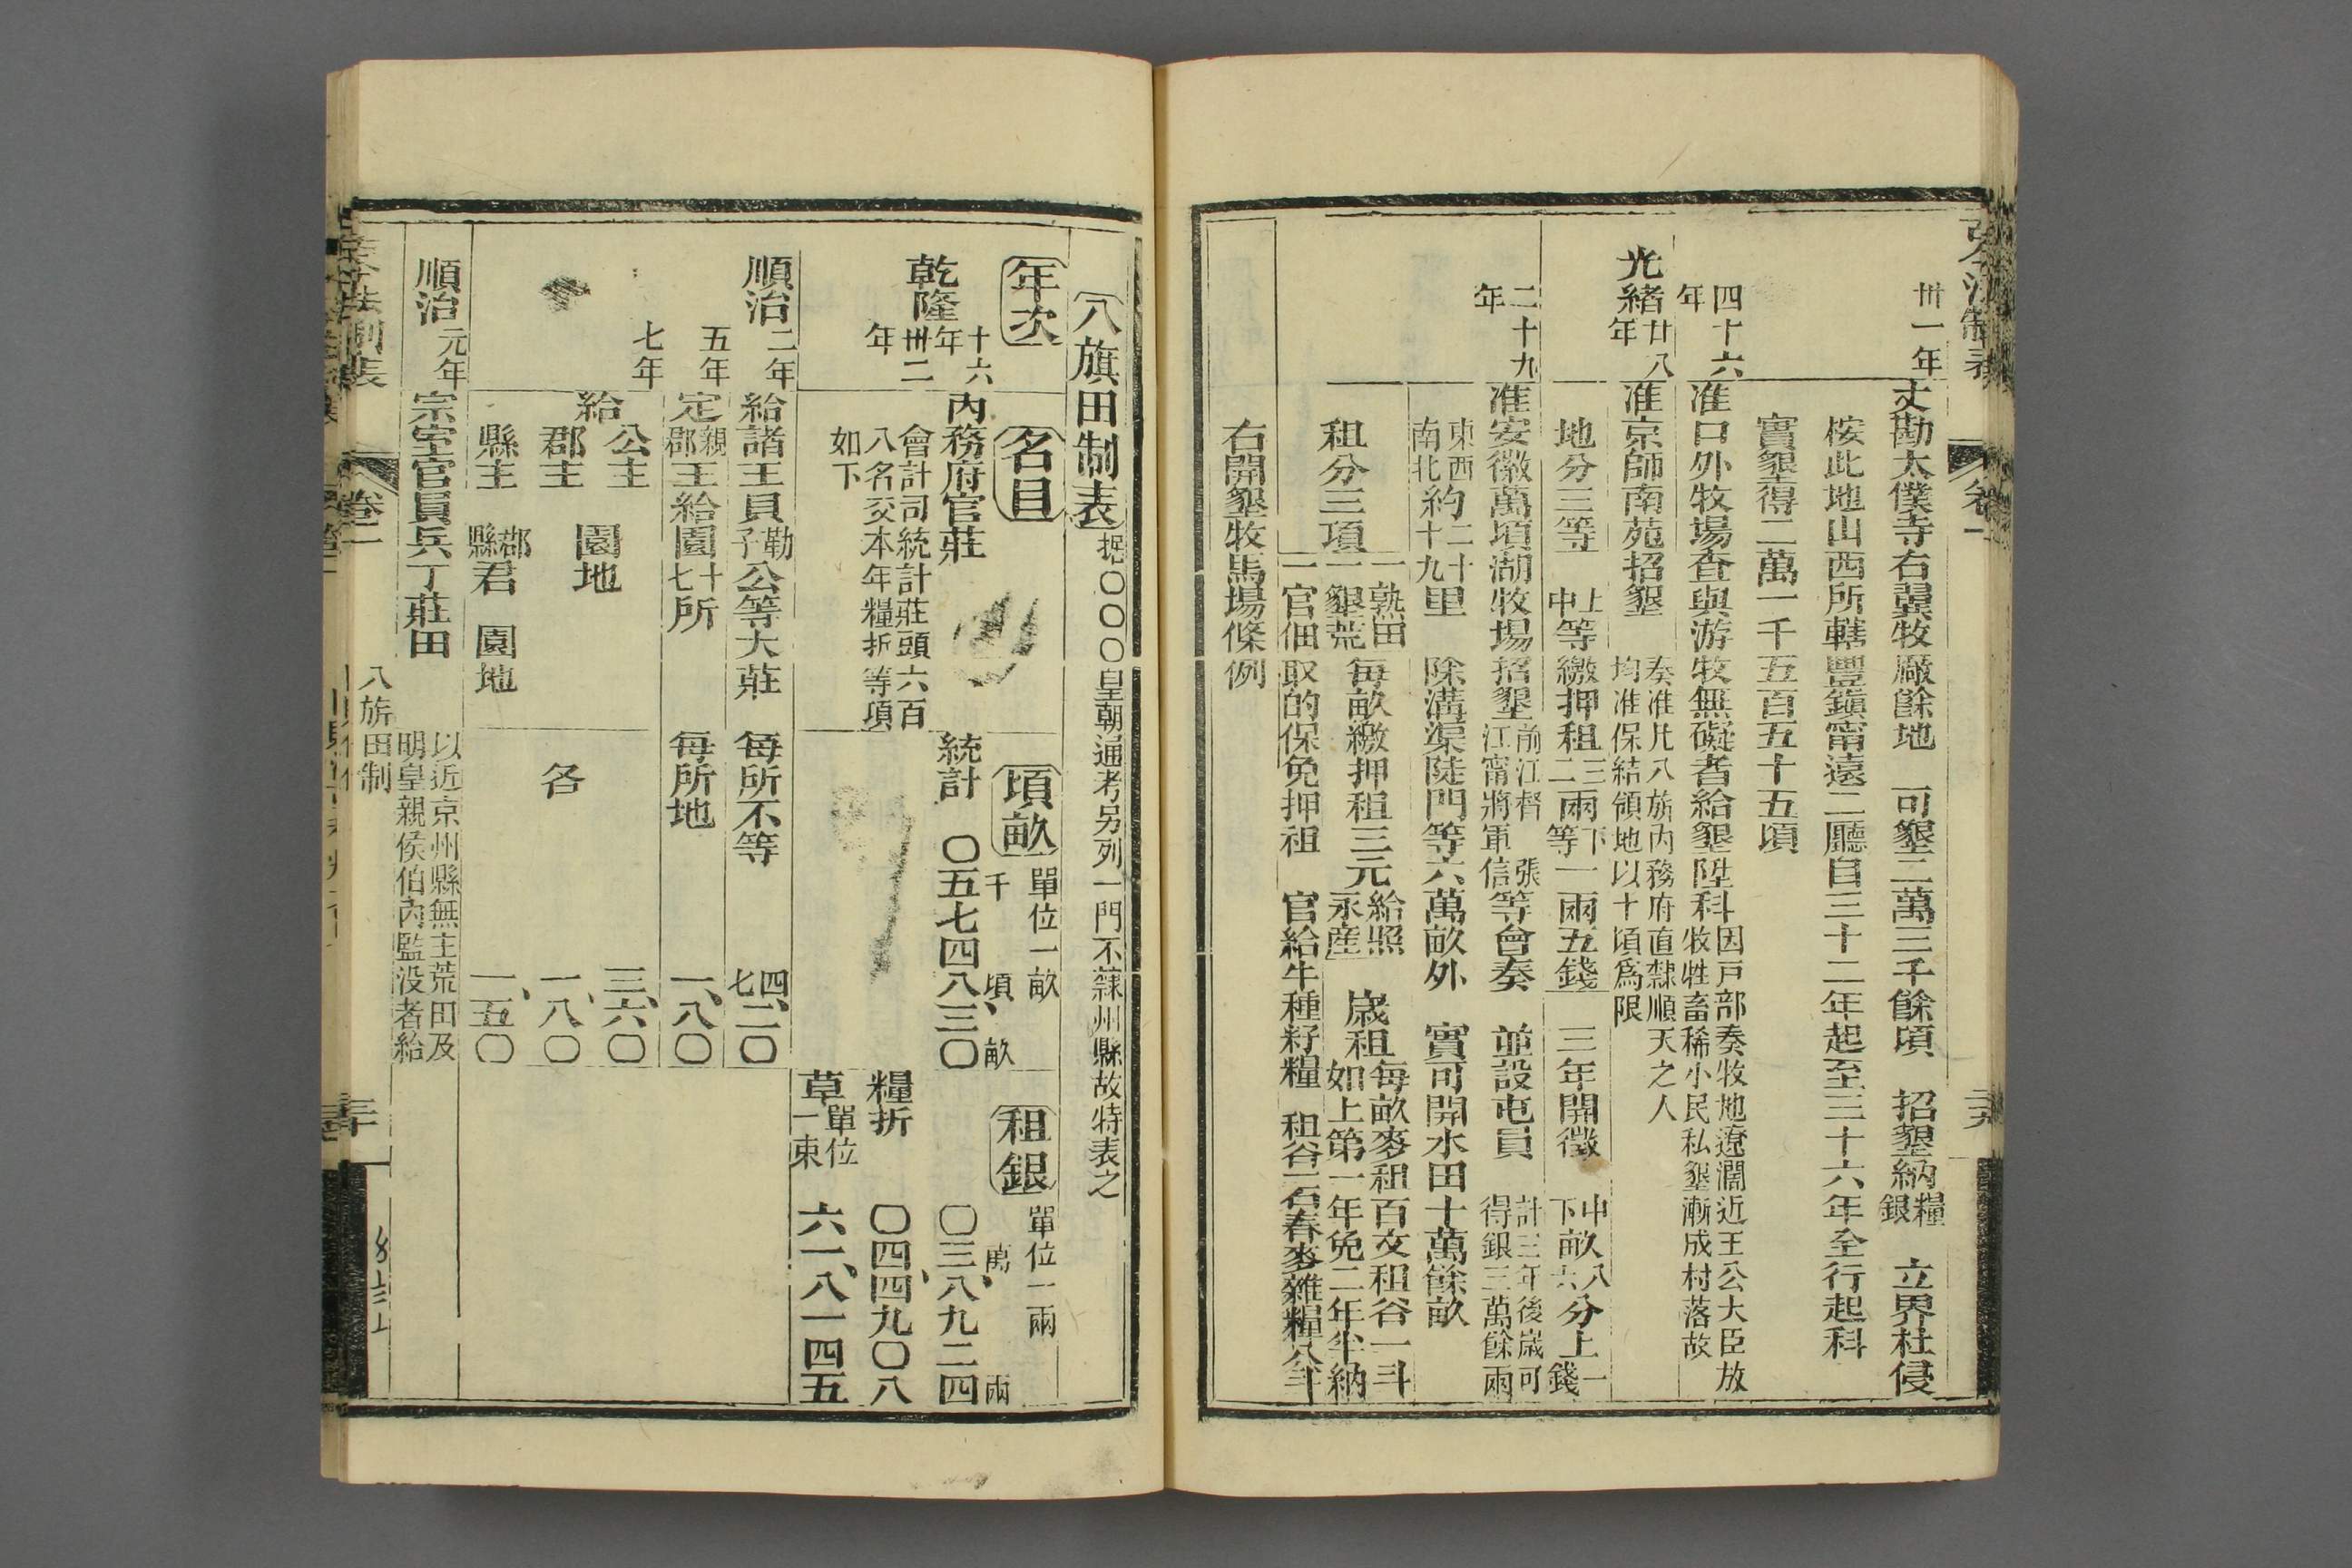 卅一年
丈勘太僕寺右翼牧廠餘地 可墾二萬三千餘頃 招墾納糧銀 立界杜侵
桉此地山西所轄豐鎮甯遠二廳自三十二年起至三十六年全行起科
實墾得二萬一千五百五十五頃
四十六年
准口外牧場查與游牧無礙者給墾陞科
因戸部奏牧地遼濶近王公大臣放
牧牲畜稀小民私墾漸成村落故
光緒廿八年
准京師南苑招墾
奏准凡八旂內務府直隸順天之人
均准保結領地以十頃爲限
地分三等 上中等繳押租三二兩下等一兩五錢 三年開徵 中下畝八六分上一錢
二十九年
准安徽萬頃湖牧場招墾
前江督 張
江甯將軍信
等會奏 並設屯員
計三年後歲可
得銀三萬餘兩
東西南北約二十十九里 除溝渠陡門等六萬畝外 實可開水田十萬餘畝
租分三項
一孰田
一墾荒
每畝繳押租三元
給照
永産
歲租
每畝麥租百文租谷一斗
如上第一年免二年半納
一官佃取的保免押租 官給牛種籽糧 租谷二石春麥雜糧八斗
右開墾牧馬場條例
卷一
八旗田制表 据〇〇〇〇皇朝通考另列一門不隸州縣故特表之
年次
名目
頃畝 單位一畝
租銀 單位一兩
千 頃 畝
萬 兩
乾隆十六年
內務府官莊 統計 〇五七四八三〇 〇三八九二四
卅二年
會計司統計莊頭六百
八名交本年糧折等項
如下
糧折 〇四四九〇八
草 單位一束 六一八一四五
順治二年
給諸王貝勒子公等大莊 每所不等 四七二〇
五年
定親郡王給園十七所 每所地 一八〇
七年
給
公主
郡主
縣主
園地
郡縣君 園地
各
三六〇
一八〇
一五〇
順治元年
宗室官員兵丁莊田
以近京州縣無主荒田及
明皇親侯伯內監没者給
卷一
八旂田制
三十